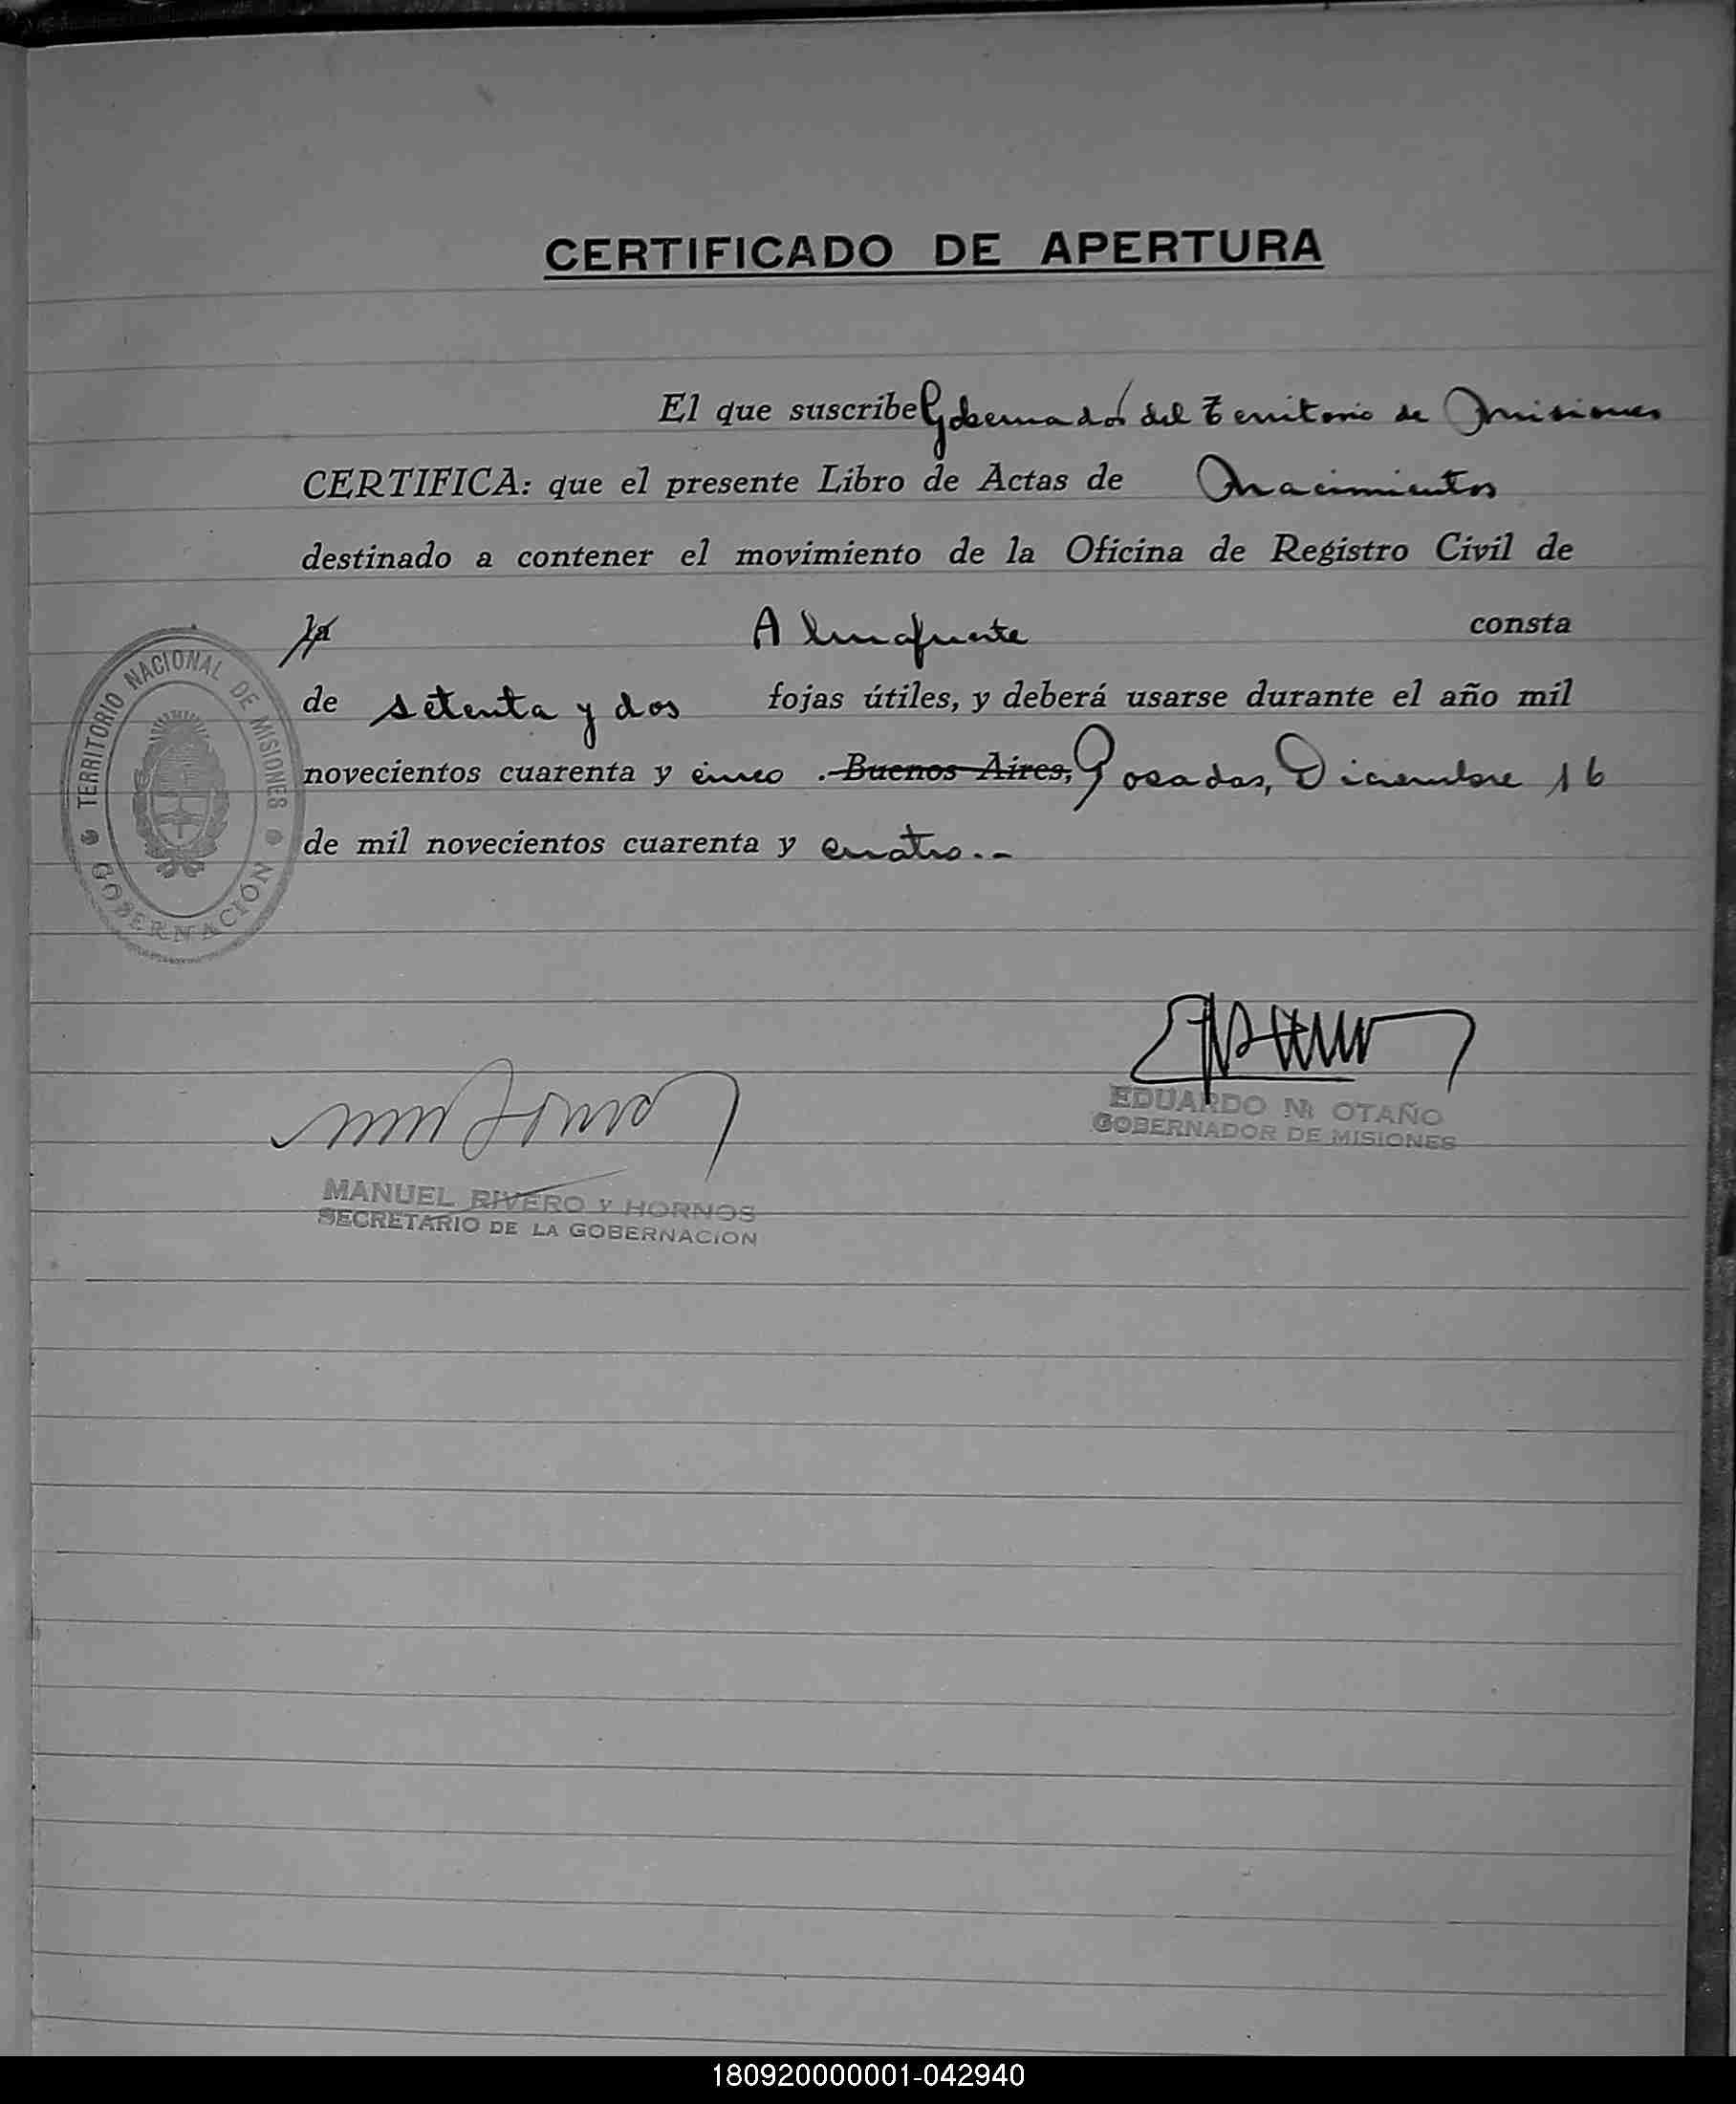 CERTIFICADO DE APERTURA
El que suscribe Gobernador del Territorio de Misiones
CERTIFICA: que el presente Libro de Actas de Nacimientos
destinado a contener el movimiento de la Oficina de Registro Civil de
la Almafuerte consta
de setenta y dos fojas útiles, y deberá usarse durante el año mil
novecientos cuarenta y cinco .-Buenos Aires, Posadas, Diciembre 16
de mil novecientos cuarenta y cuatro.-
TERRITORIO NACIONAL DE MISIONES
GOBERNACIÓN
EDUARDO M. OTAÑO
GOBERNADOR DE MISIONES
MANUEL RIVERO Y HORNOS
SECRETARIO DE LA GOBERNACION
180920000001-042940